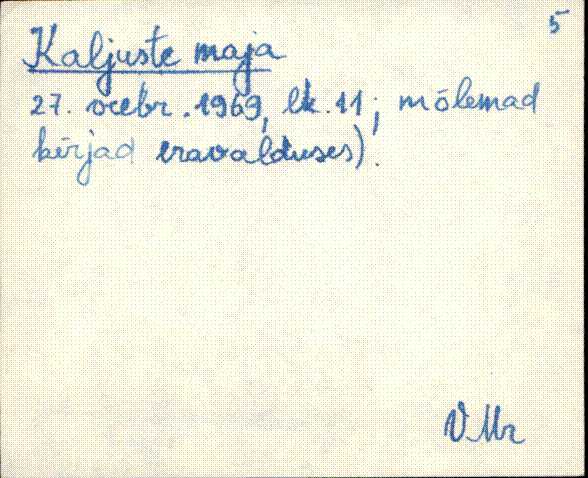 5
Kaljuste maja
27. veebr. 1969, lk. 11; mõlemad
kirjad eravalduses).
V Mr